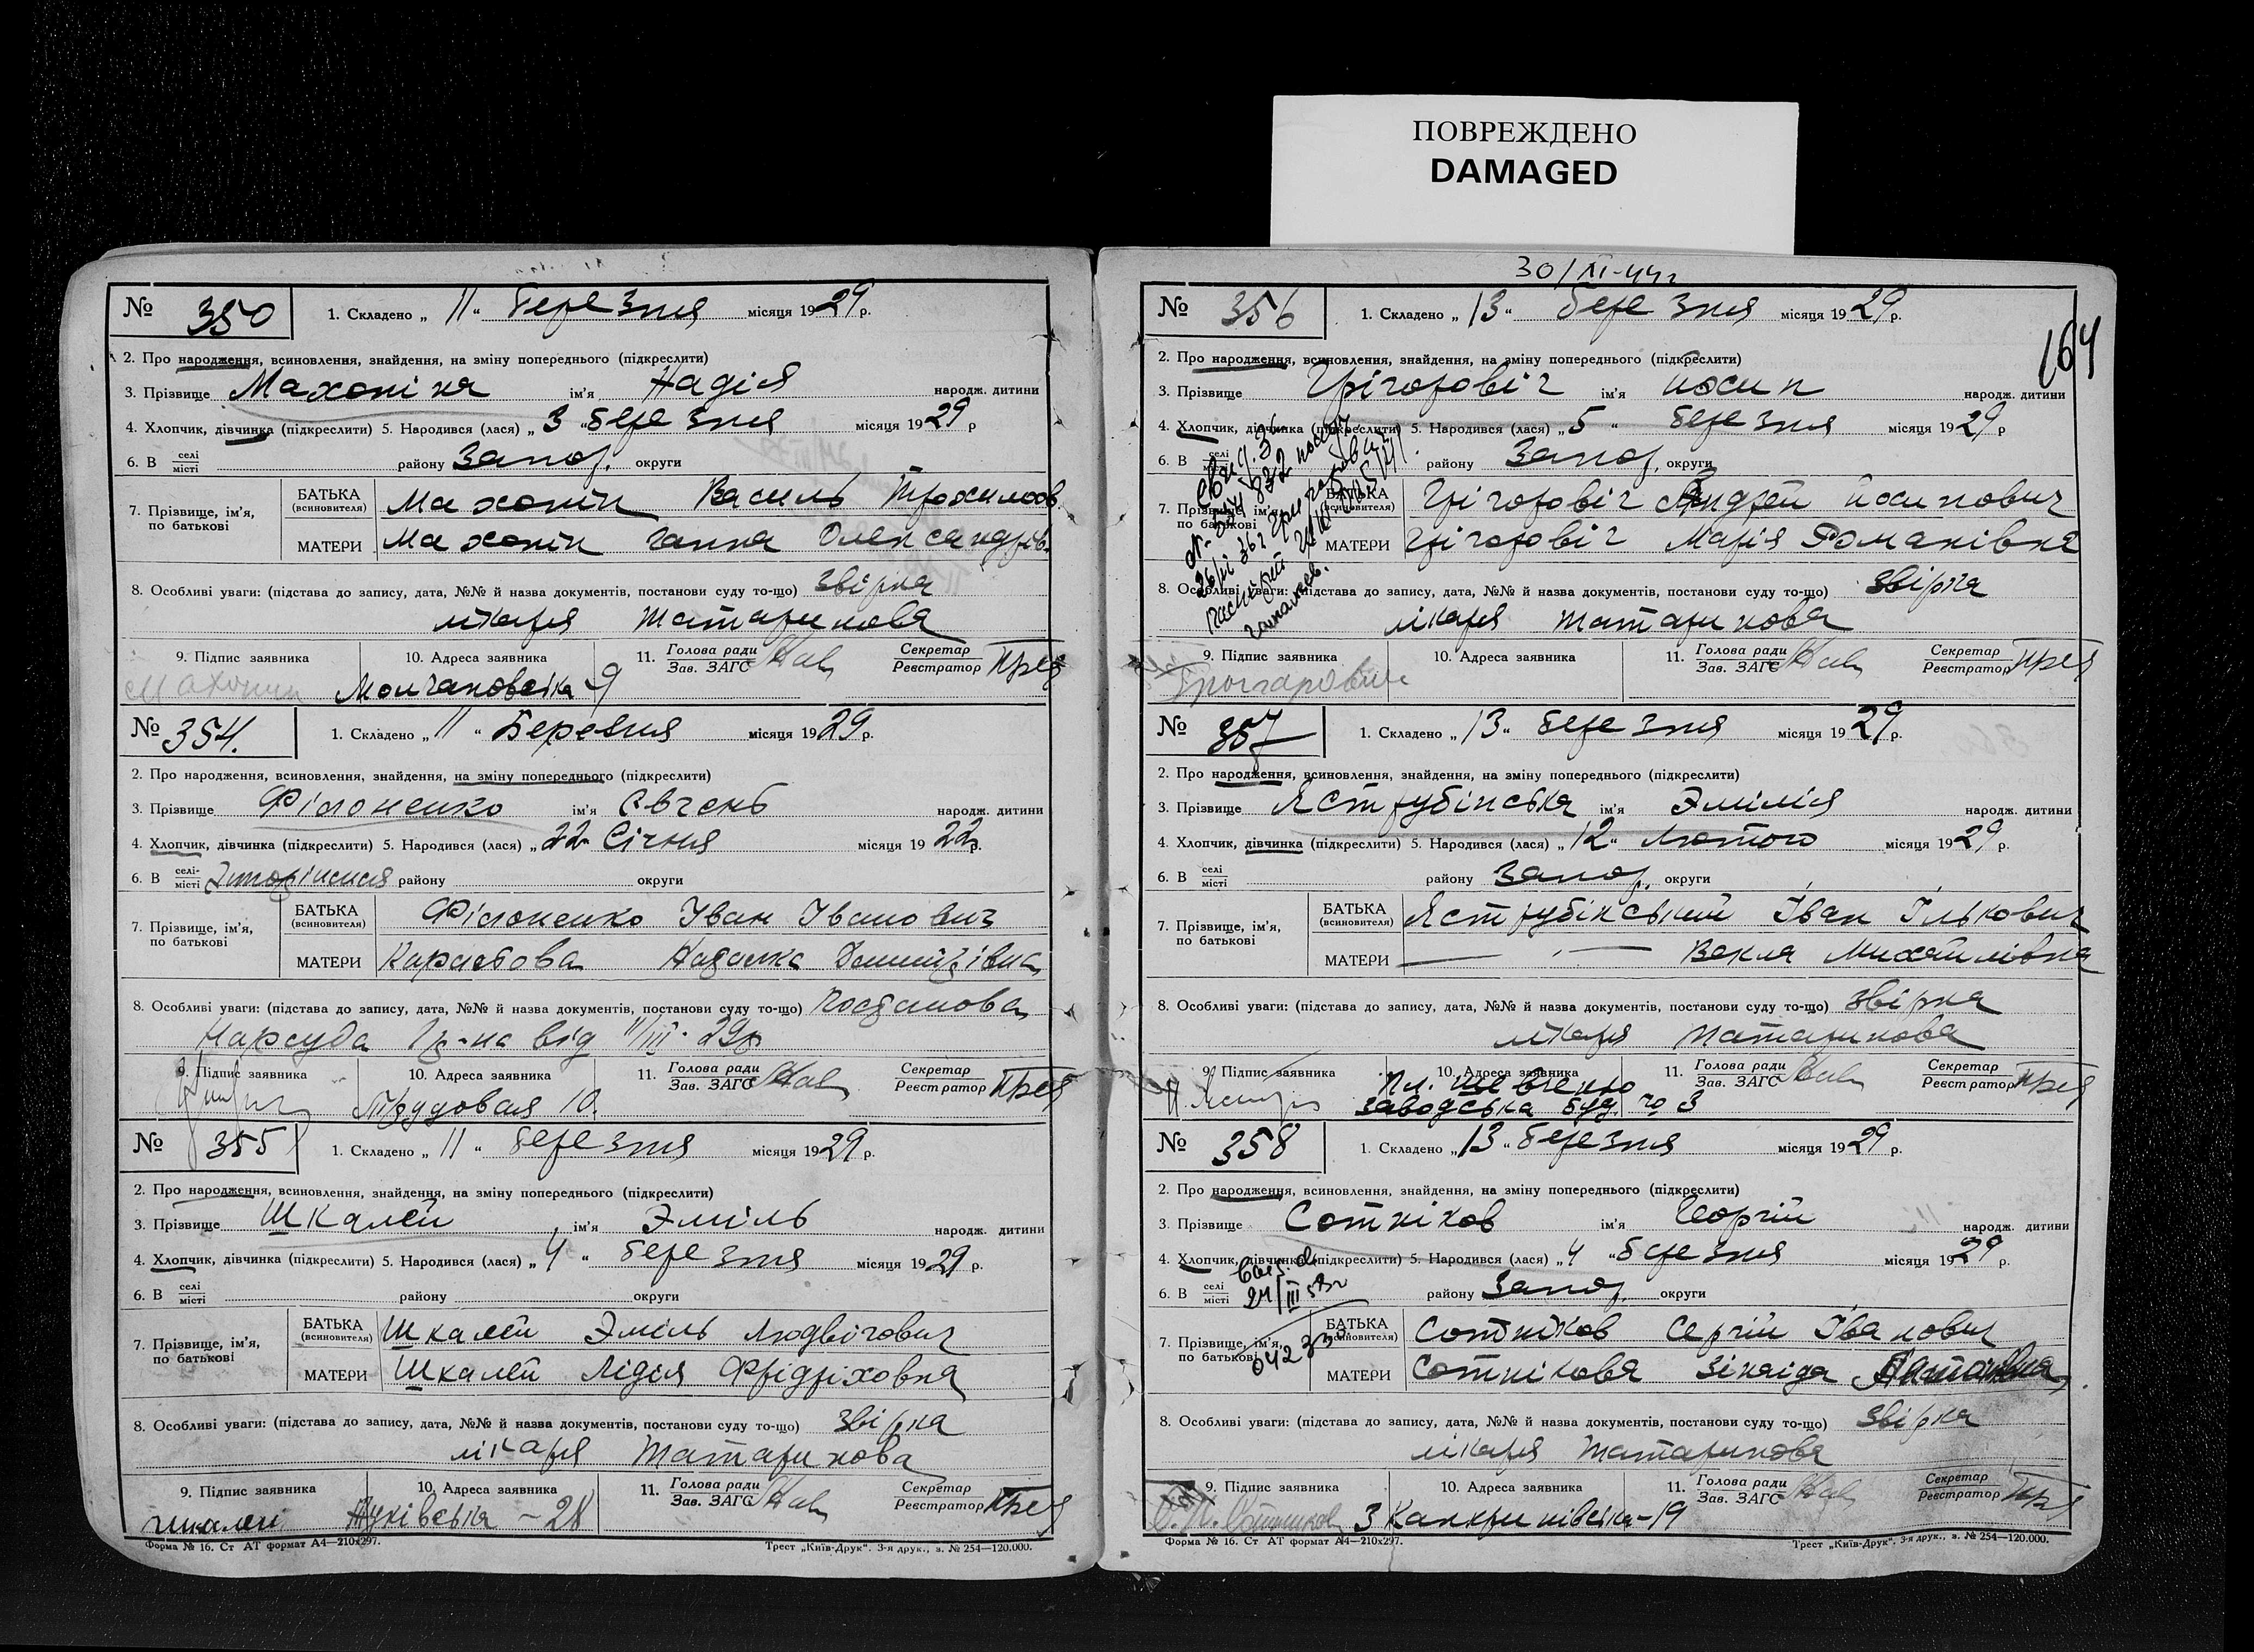 ПОВРЕЖДЕНО
DAMAGED
№ 350 1. Складено „ 11 “ березня місяця 1929 р.
2. Про народження, всиновлення, знайдення, на зміну попереднього (підкреслити)
3. Прізвище Махоніна ім'я Надія народж. дитини
4. Хлопчик, дівчинка (підкреслити) 5. Народився (лася) „ 3 “ березня місяця 1929 р
6. В селі місті району Запор. округи
7. Прізвище, ім'я, по батькові
БАТЬКА (всиновителя) Махонін Василь
МАТЕРИ Махонін Ганна Олександрів.
8. Особливі уваги: (підстава до запису, дата, №№ й назва документів, постанови суду то-що) Звірка
лікаря Татаринова
9. Підпис заявника 10. Адреса заявника 11. Голова ради Зав. ЗАГС Секретар Реєстратор
Молчановська 9
№ 354. 1. Складено „ 11 “ Березня місяця 1929 р.
2. Про народження, всиновлення, знайдення, на зміну попереднього (підкреслити)
3. Прізвище Філоненко ім'я Євгень народж. дитини
4. Хлопчик, дівчинка (підкреслити) 5. Народився (лася) „ 22 Січня місяця 1922 р.
6. В селі- місті Запоріжжя району округи
7. Прізвище, ім'я, по батькові
БАТЬКА (всиновителя) Філоненко Іван Іванович
МАТЕРИ Наталка
8. Особливі уваги: (підстава до запису, дата, №№ й назва документів, постанови суду то-що) Постанова
Нарсуда від 11/III-29р
9. Підпис заявника 10. Адреса заявника 11. Голова ради Зав. ЗАГС Секретар Реєстратор
Трудовая 10.
№ 355 1. Складено „ 11 “ березня місяця 1929 р.
2. Про народження, всиновлення, знайдення, на зміну попереднього (підкреслити)
3. Прізвище Шкалей ім'я Эміль народж. дитини
4. Хлопчик, дівчинка (підкреслити) 5. Народився (лася) „ 4 “ березня місяця 1929 р.
6. В селі місті району округи
7. Прізвище, ім'я, по батькові
БАТЬКА (всиновителя) Шкалей Эміль Людвігович
МАТЕРИ Шкалей Лідія Фрідріховна
8. Особливі уваги: (підстава до запису, дата, №№ й назва документів, постанови суду то-що) Звірка
лікаря Татаринова
9. Підпис заявника 10. Адреса заявника 11. Голова ради Зав. ЗАГС Секретар Реєстратор
Шкалей Жуківська - 28
Форма № 16. Ст АТ формат А4—210х297. Трест „Київ-Друк“. 3-я друк., з. № 254—120.000.
30/XI-44г
164
№ 356 1. Складено „ 13 “ березня місяця 1929 р.
2. Про народження, всиновлення, знайдення, на зміну попереднього (підкреслити)
3. Прізвище Грігоровіч ім'я йосип народж. дитини
4. Хлопчик, дівчинка (підкреслити) 5. Народився (лася) „ 5 “ березня місяця 1929 р
6. В селі місті району Запор. округи
7. Прізвище, ім'я, по батькові
БАТЬКА (всиновителя) Грігоровіч Андрей йосипович
МАТЕРИ Грігоровіч Марія Романівна
8. Особливі уваги: (підстава до запису, дата, №№ й назва документів, постанови суду то-що) Звірка
лікаря Татаринова
9. Підпис заявника 10. Адреса заявника 11. Голова ради Зав. ЗАГС Секретар Реєстратор
№ 357 1. Складено „ 13 “ березня місяця 1929 р.
2. Про народження, всиновлення, знайдення, на зміну попереднього (підкреслити)
3. Прізвище Яструбінська ім'я Эмілія народж. дитини
4. Хлопчик, дівчинка (підкреслити) 5. Народився (лася) „ 12 “ Лютого місяця 1929 р.
6. В селі місті району Запор. округи
7. Прізвище, ім'я, по батькові
БАТЬКА (всиновителя) Яструбінський ІванІлькович
МАТЕРИ — " — Векля Михайлівна
8. Особливі уваги: (підстава до запису, дата, №№ й назва документів, постанови суду то-що) Звірка
лікаря Татаринова
9. Підпис заявника 10. Адреса заявника 11. Голова ради Зав. ЗАГС Секретар Реєстратор
пл. Шевченко
заводська буд. № 3
№ 358 1. Складено „ 13 “ березня місяця 1929 р.
2. Про народження, всиновлення, знайдення, на зміну попереднього (підкреслити)
3. Прізвище Сотніков ім'я Георгій народж. дитини
4. Хлопчик, дівчинка (підкреслити) 5. Народився (лася) „ 4 “ березня місяця 1929 р.
6. В селі місті району Запор. округи
7. Прізвище, ім'я, по батькові
БАТЬКА (всиновителя) Сотніков Сергій Іванович
МАТЕРИ Сотнікова Зінаіда
8. Особливі уваги: (підстава до запису, дата, №№ й назва документів, постанови суду то-що) Звірка
лікаря Татаринова
9. Підпис заявника 10. Адреса заявника 11. Голова ради Зав. ЗАГС Секретар Реєстратор
3 Канкринівська-19
Форма № 16. Ст АТ формат А4—210х297. Трест „Київ-Друк“. 3-я друк., з. № 254—120.000.